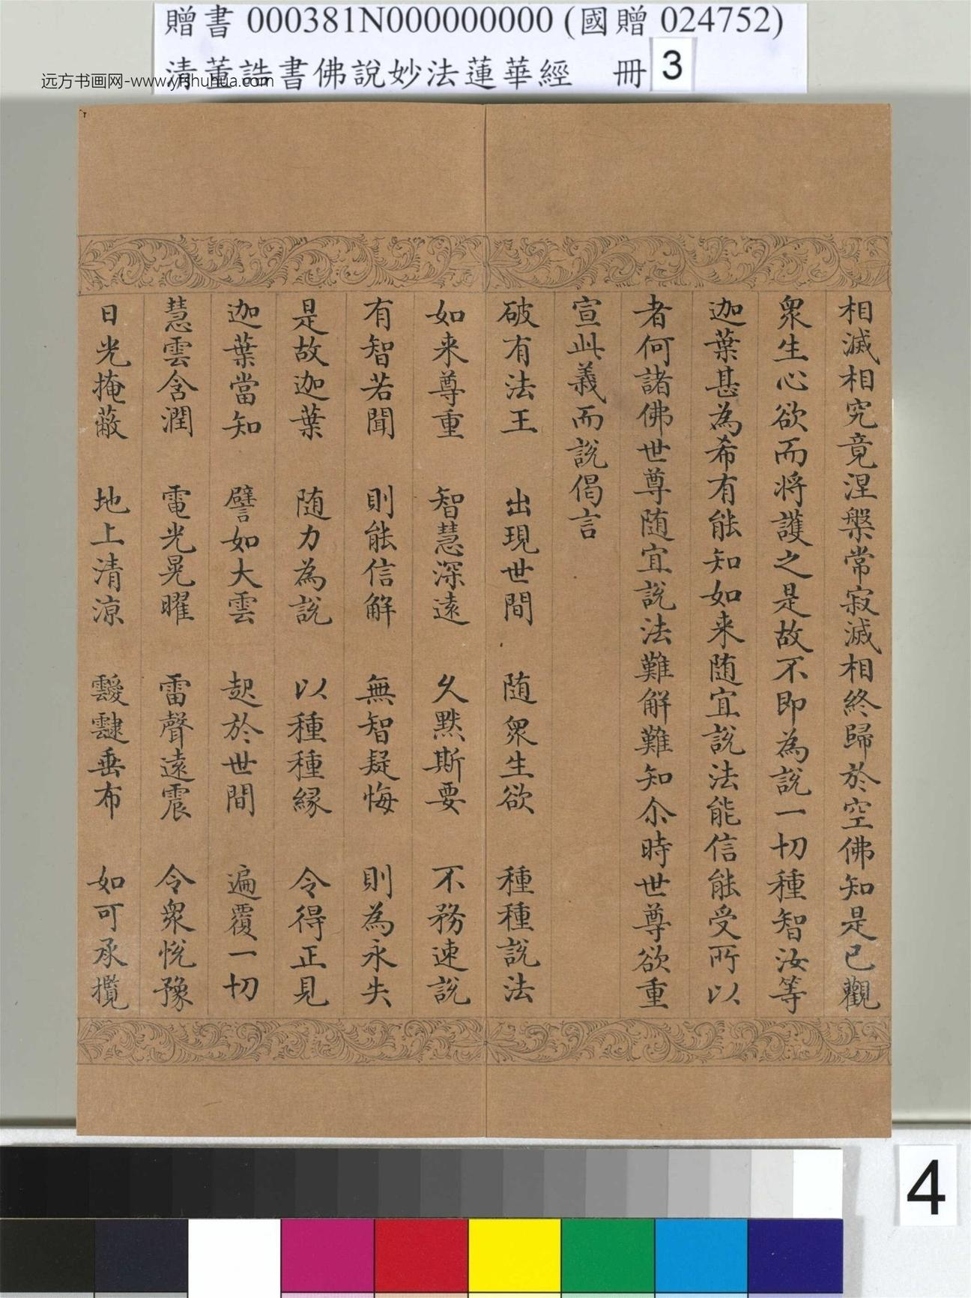 贈書 000381N000000000 (國贈 024752)
清董誥書佛說妙法蓮華經 冊 3
远方书画网-www.yfshuhua.com
相滅相究竟涅槃常寂滅相終歸於空佛知是已觀
衆生心欲而将護之是故不即為說一切種智汝等
迦葉甚為希有能知如来随宜說法能信能受所以
者何諸佛世尊随宜說法難解難知尒時世尊欲重
宣此義而說偈言
破有法王 出現世間 随衆生欲 種種說法
如来尊重 智慧深遠 久黙斯要 不務速說
有智若聞 則能信解 無智疑悔 則為永失
是故迦葉 随力為說 以種種緣 令得正見
迦葉當知 譬如大雲 起於世間 遍覆一切
慧雲含潤 電光晃曜 雷聲遠震 令衆悅豫
日光掩蔽 地上清涼 靉靆垂布 如可承攬
4